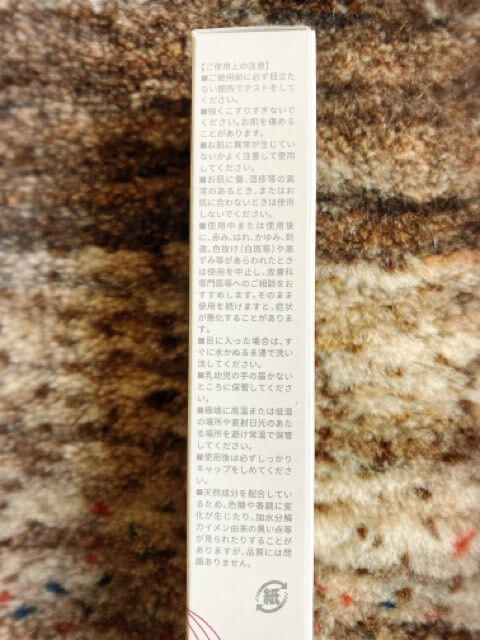 【ご使用上の注意】
■ご使用前に必ず目立た
ない箇所でテストをして
ください。
■強くこすりすぎないで
ください。お肌を傷める
ことがあります。
■お肌に異常が生じてい
ないかよく注意して使用
してください。
■お肌に傷、湿疹等の異
常のあるとき、またはお
肌に合わないときは使用
しないでください。
■使用中または使用後
に、赤み、はれ、かゆみ、刺
激、色抜け(白斑等)や黒
ずみ等があらわれたとき
は使用を中止し、皮膚科
専門医等へのご相談をお
すすめします。そのまま
使用を続けますと、症状
が悪化することがありま
す。
■目に入った場合は、す
ぐに水かぬるま湯で洗い
流してください。
■乳幼児の手の届かない
ところに保管してくださ
い。
■極端に高温または低温
の場所や直射日光のあた
る場所を避け常温で保管
してください。
■使用後は必ずしっかり
キャップをしめてくださ
い。
■天然成分を配合してい
るため、色調や香調に変
化が生じたり、加水分解
カイメン由来の黒い点等
が見られたりすることが
ありますが、品質には問
題ありません。
紙